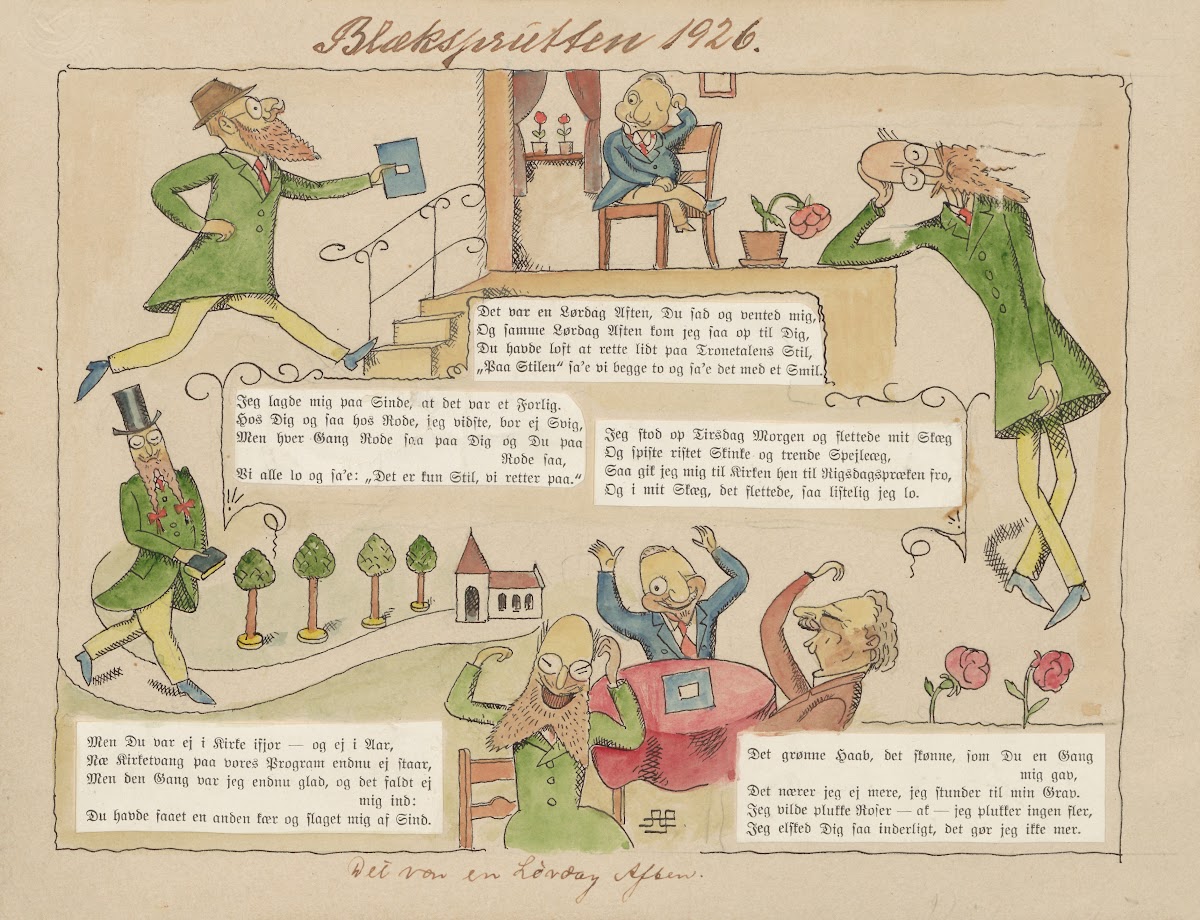 Blæksprutten 1926.
Det var en Lørdag Aften, Du sad og vented mig,
Og samme Lørdag Aften kom jeg saa op til Dig,
Du havde loft at rette lidt paa Tronetalens Stil,
„Paa Stilen“ sa'e vi begge to og sa'e det med et Smil.
Jeg lagde mig paa Sinde, at det var et Forlig.
Hos Dig og saa hos Rode, jeg vidste, bor ej Svig,
Men hver Gang Rode saa paa Dig og Du paa
Rode saa,
Vi alle lo og sa'e: „Det er kun Stil, vi retter paa.“
Jeg stod op Tirsdag Morgen og flettede mit Skæg
Og spiste ristet Skinke og trende Spejleæg,
Saa gik jeg mig til Kirken hen til Rigsdagspræken fro,
Og i mit Skæg, det flettede, saa listelig jeg lo.
Men Du var ej i Kirke ifjor — og ej i Aar,
Næ Kirketvang paa vores Program endnu ej staar,
Men den Gang var jeg endnu glad, og det faldt ej
mig ind:
Du havde faaet en anden kær og slaget mig af Sind.
Det grønne Haab, det skønne, som Du en Gang
mig gav,
Det nærer jeg ej mere, jeg stunder til min Grav.
Jeg vilde plukke Roser — ak — jeg plukker ingen fler,
Jeg elsked Dig saa inderligt, det gør jeg ikke mer.
Det var en Lørdag Aften.